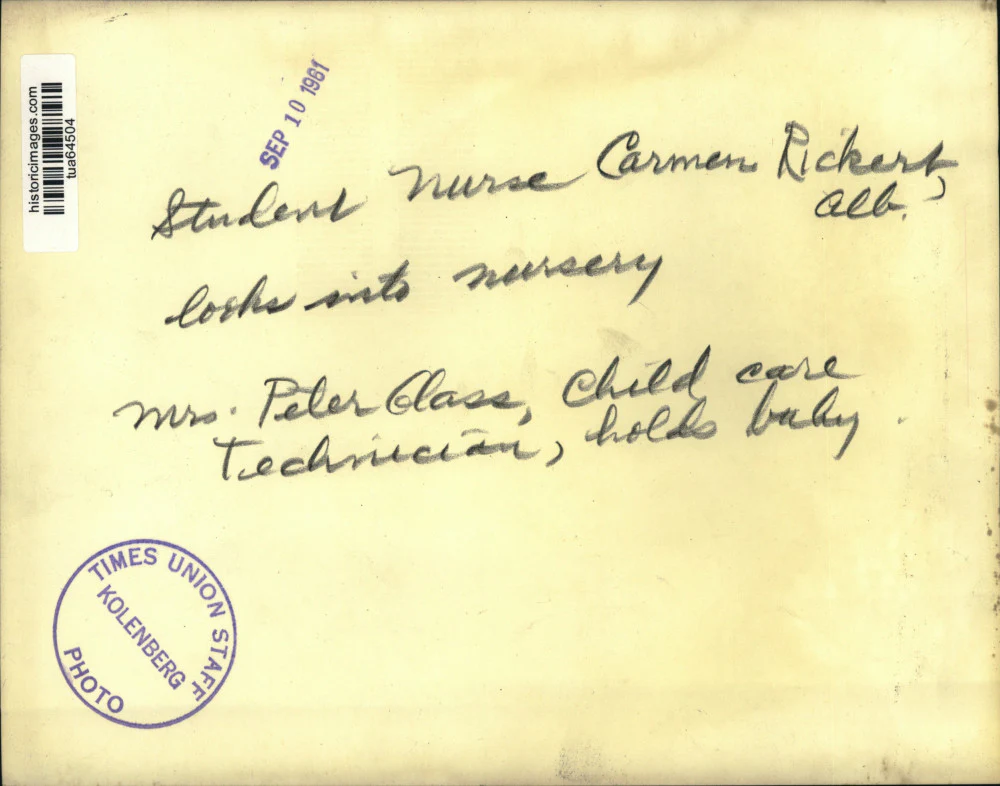 historicimages.com
tua64504
SEP 10 1961
Student Nurse Carmen Rickert,
Alb.
looks into nursery
Mrs. Peter Class, Child care
Technician, holds baby.
TIMES UNION STAFF
KOLENBERG
PHOTO